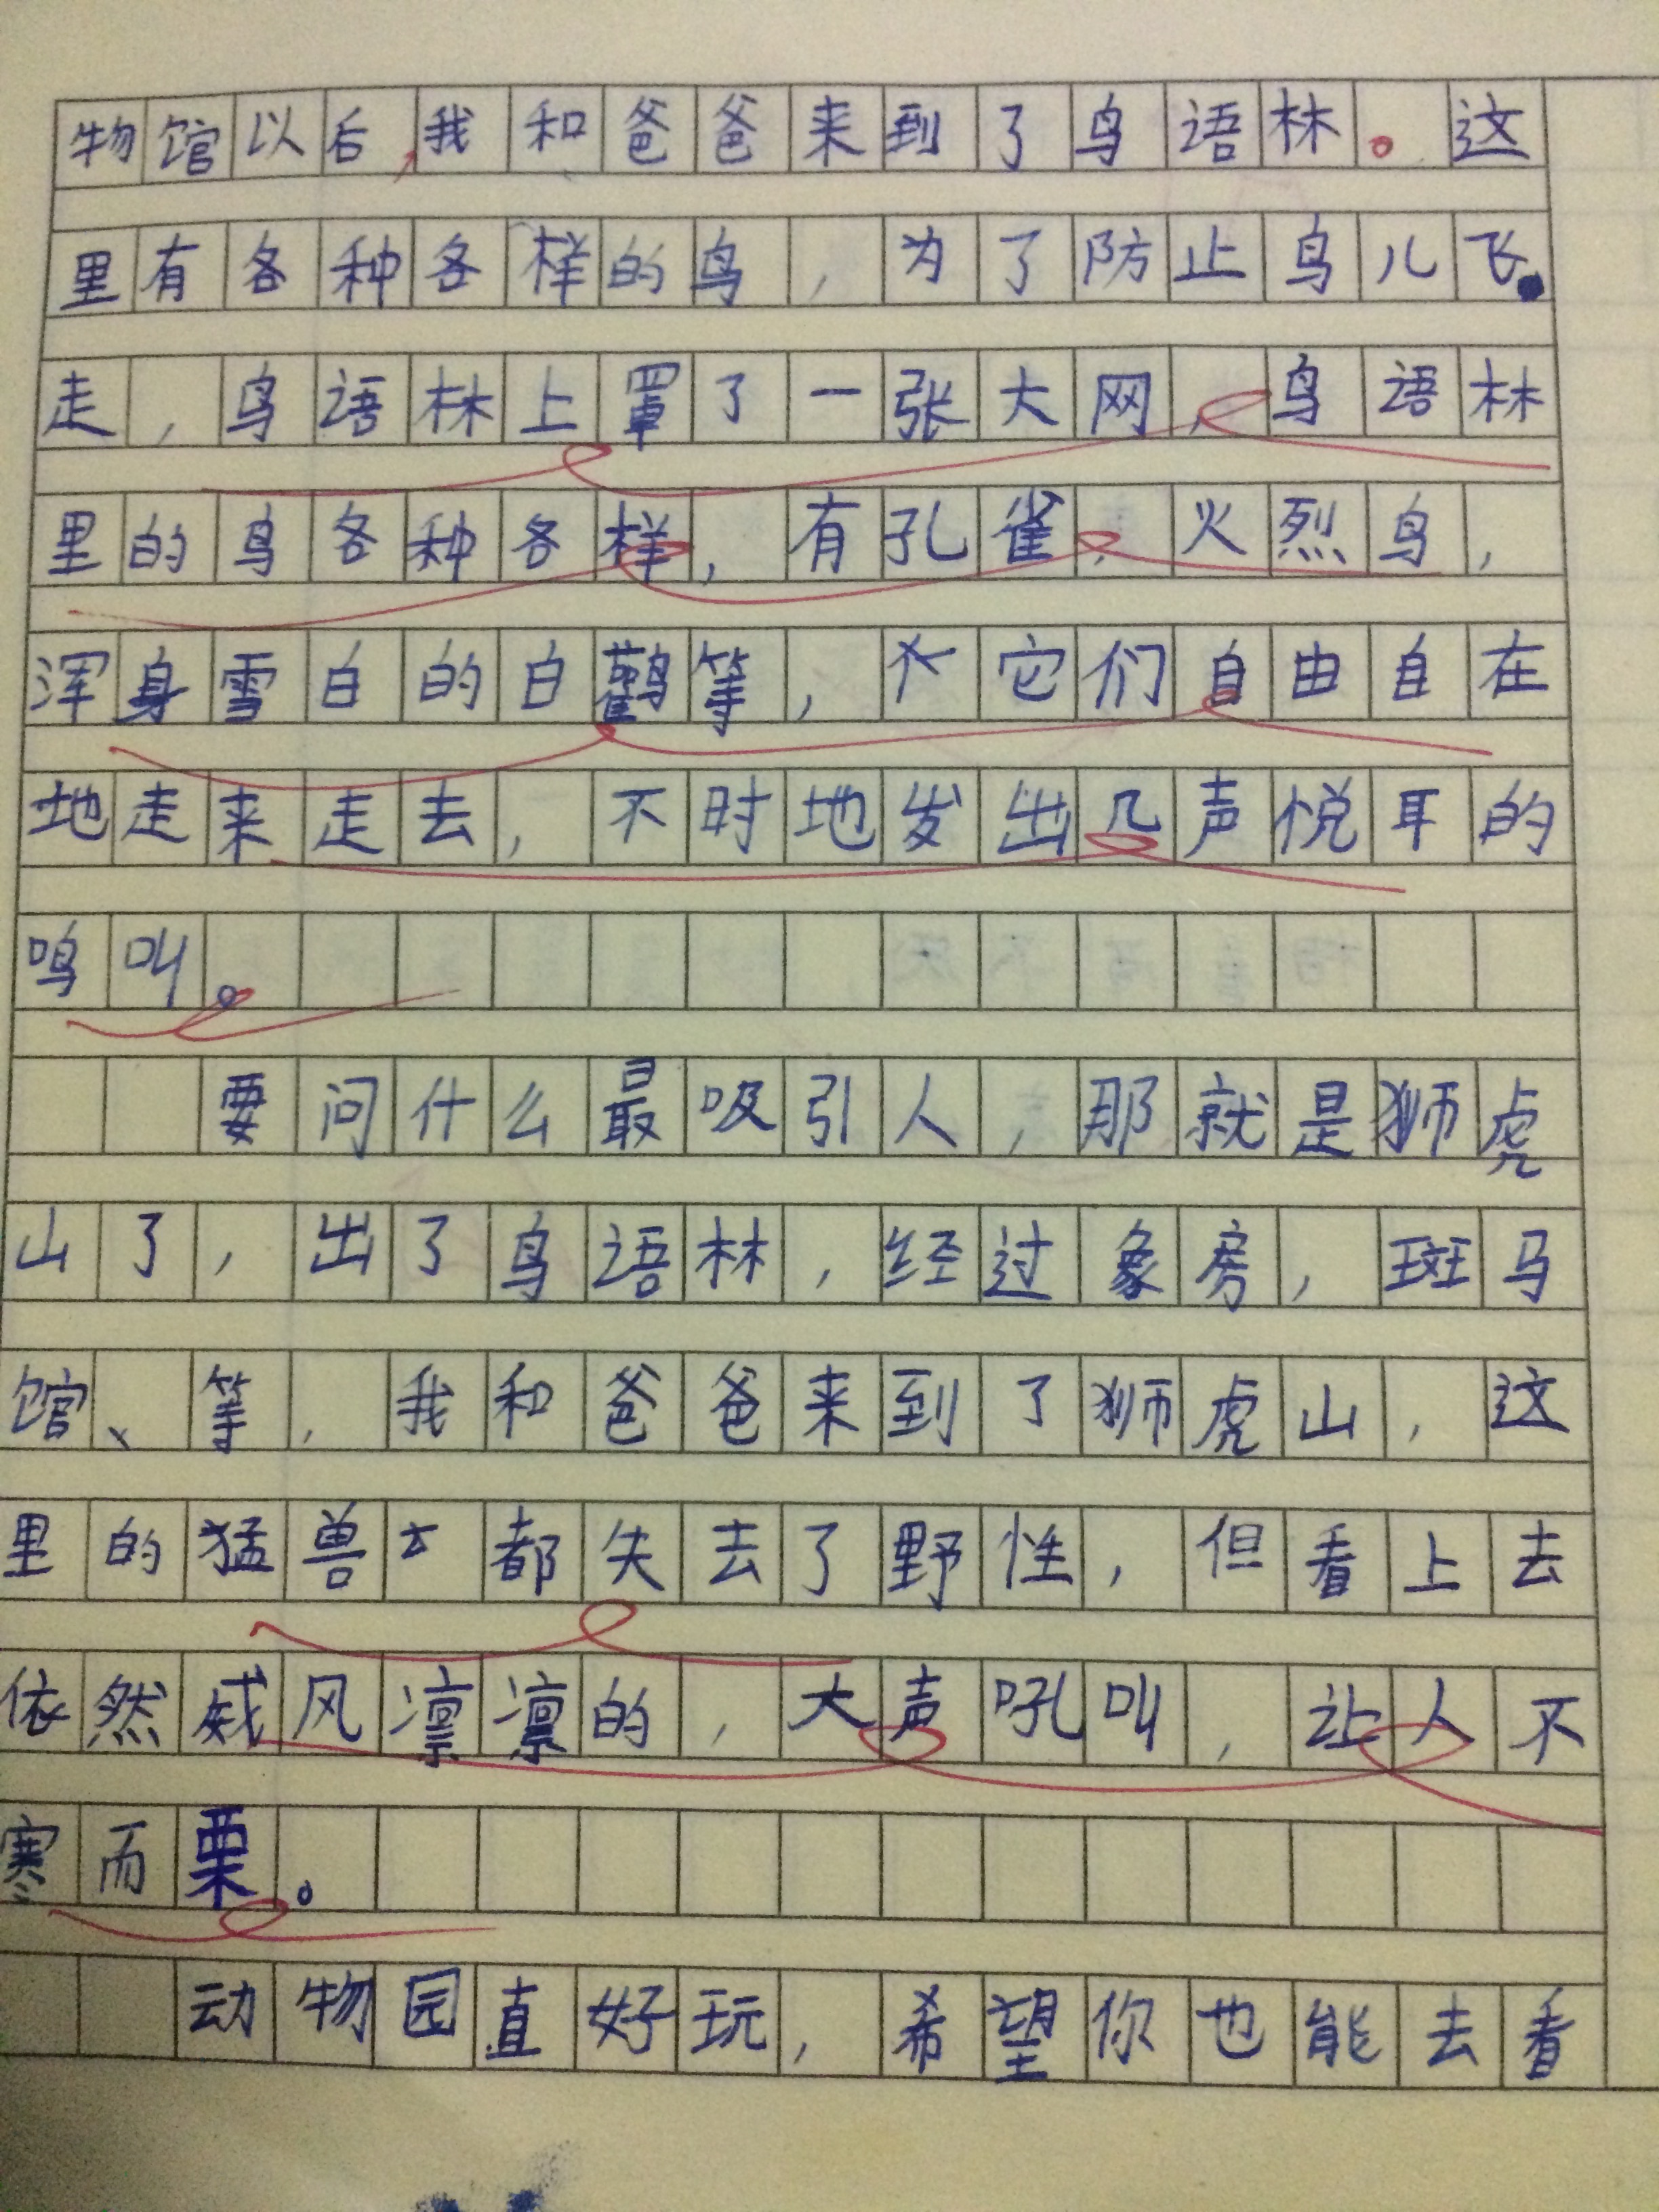 物馆以后，我和爸爸来到了鸟语林。这
里有各种各样的鸟，为了防止鸟儿飞
走，鸟语林上罩了一张大网，鸟语林
里的鸟各种各样，有孔雀、火烈鸟，
浑身雪白的白鹳等，它们自由自在
地走来走去，不时地发出几声悦耳的
鸣叫。
要问什么最吸引人，那就是狮虎
山了，出了鸟语林，经过象房，斑马
馆、等，我和爸爸来到了狮虎山，这
里的猛兽都失去了野性，但看上去
依然威风凛凛的，大声吼叫，让人不
寒而栗。
动物园直好玩，希望你也能去看